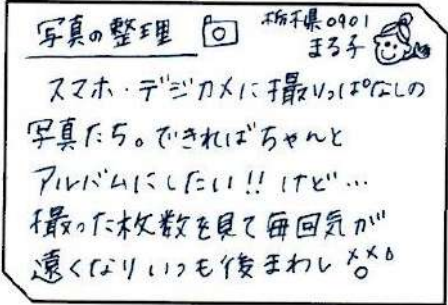 写真の整理
栃木県0901
まる子
スマホ・デジカメに撮りっぱなしの
写真たち。できればちゃんと
アルバムにしたい!! けど…
撮った枚数を見て毎回気が
遠くなりいつも後まわし